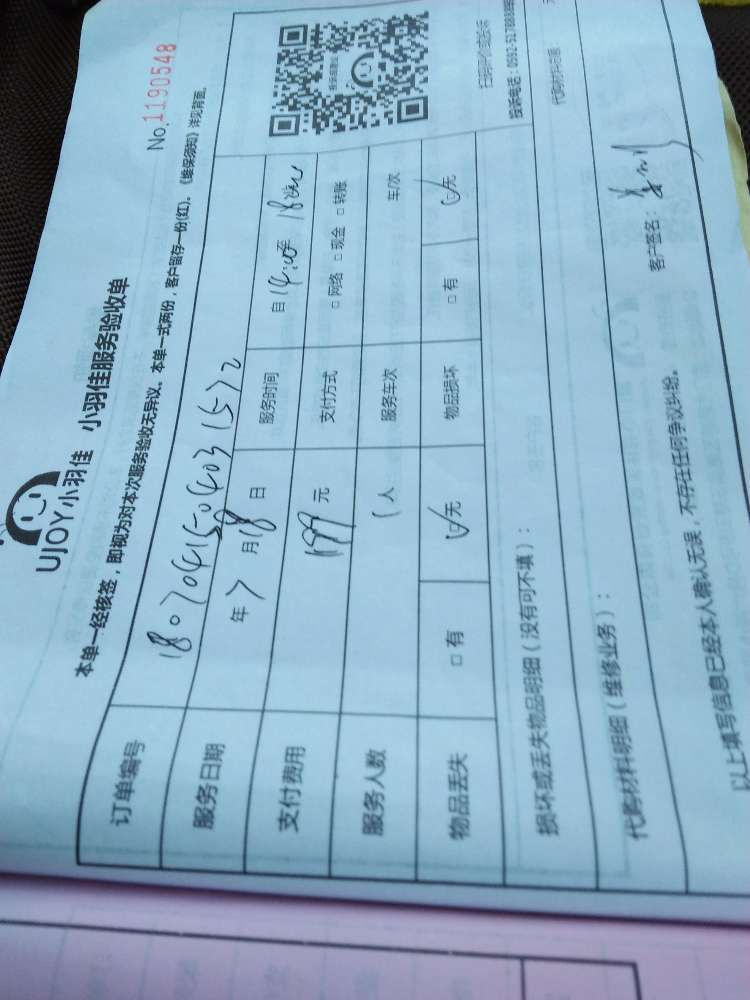 UJOY小羽佳 小羽佳服务验收单
No.1190548
本单一经核签，即视为对本次服务验收无异议。本单一式两份，客户留存一份(红)。《维保须知》详见背面。
订单编号 180704150403 1572
服务日期 年 7 月 18 日 服务时间 自 14:00 至 18
支付费用 199 元 支付方式 □ 网络 □ 现金 □ 转账
服务人数 1 人 服务车次 车/次
物品丢失 □ 有 ☑ 无 物品损坏 □ 有 ☑ 无
损坏或丢失物品明细（没有可不填）：
代购材料明细（维修业务）：
以上填写信息已经本人确认无误，不存在任何争议纠纷。
客户签名：